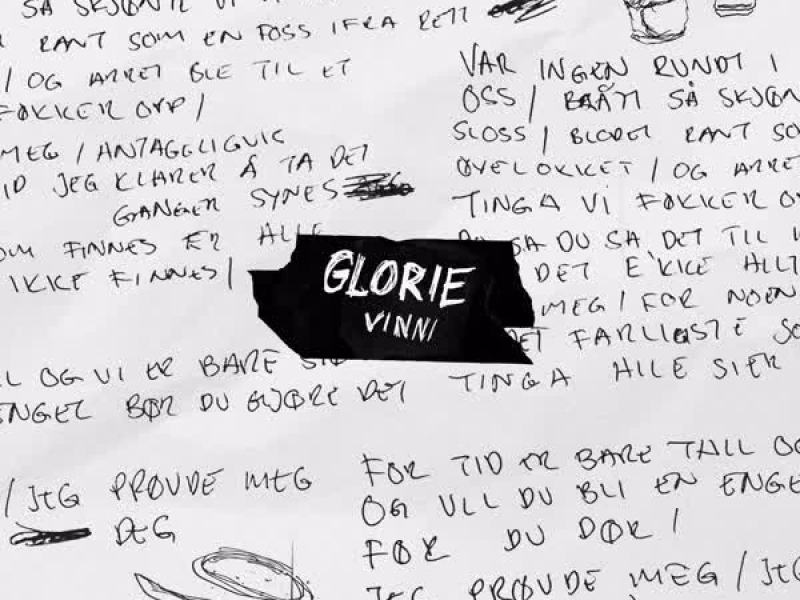 SÅ SKJØNTE VI
RANT SOM EN FOSS IFRA RETT
/ OG ARRET BLE TIL ET
FØKKER OPP /
MEG / ANTAGELIGVIS
TID JEG KLARER Å TA DET
GANGER SYNES
SOM FINNES ER ALLE
IKKE FINNES /
OG VI ER BARE
ENGEL BØR DU GJØRE DET
/ JEG PRØVDE MEG
DEG
VAR INGEN RUNDT I
OSS / BRÅTT SÅ SKJØN
SLOSS / BLODET RANT SO
ØYELOKKET / OG ARRE
TINGA VI FØKKER OP
SA DU SA DET TIL
DET E'KKE ALLT
MEG / FOR NOEN
DET FARLIGSTE SO
TINGA ALLE SIER
FOR TID ER BARE TALL OG
OG VLL DU BLI EN ENGE
FØR DU DØR /
JEG PRØVDE MEG / JEG
GLORIE
VINNI